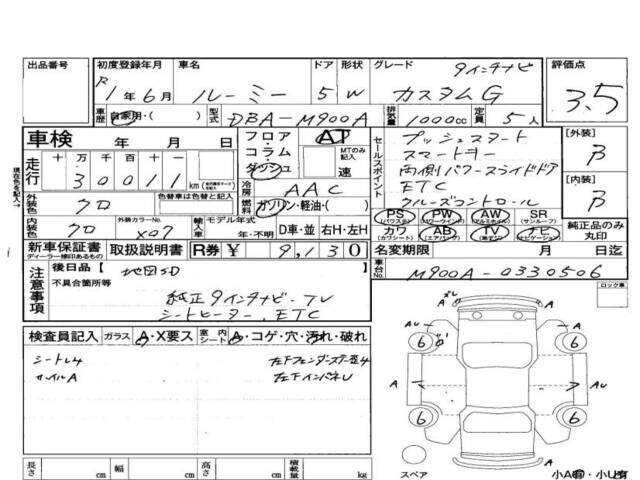 出品番号 初度登録年月 車名 ドア 形状 グレード 9インチナビ 評価点
R 1年6月 ルーミー 5 W カスタムG 3.5
車歴 自家用・( ) 型式 DBA-M900A 排気量 1000cc 定員 5人
車検 年 月 日 フロア・コラム・ダッシュ AT MTのみ記入 速
走行 十 万 千 百 十 一
30011 km
現車色を記入→
冷房 AAC
外装色 クロ 色替車は色替と記入 燃料 ガソリン・軽油・( )
内装色 クロ 外装カラーNo. X07 輸入車 モデル年式 年・不明 D車・並 右H・左H
セールスポイント
プッシュスタート
スマートキー
両側パワースライドドア
ETC
クルーズコントロール
[外装] B
[内装] B
PS (パワステ) PW (パワーウインド) AW (アルミホイル) SR (サンルーフ)
カワ (カワシート) AB (エアバッグ) TV (純テレビ) ナビ (ナビゲーション) 純正品のみ丸印
新車保証書 ディーラー捺印あるもの 取扱説明書 R券 ¥ 9,130 名変期限 月 日迄
車台No. M900A-0330506
注意事項 後日品 地図SD
不具合箇所等
純正9インチナビ・TV
シートヒーター、ETC
ロック車
検査員記入 ガラス A・X要ス 室内シート A・コゲ・穴・汚れ・破れ
ホイルA
A ズレ
AU A
6 6
A A AU
6 6
A
スペア 小A有・小U有
長さ cm 幅 cm 高さ cm 積載量 kg